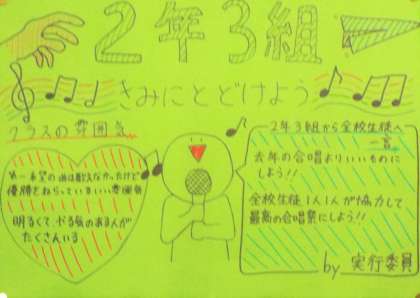 2年3組
きみにとどけよう
クラスの雰囲気
第一希望の曲は歌えなかったけど
優勝をねらっているいい雰囲気
明るくて、やる気のある人が
たくさんいる
2年3組から全校生徒へ
一言
去年の合唱よりいいものに
しよう!!
全校生徒1人1人が協力して
最高の合唱祭にしよう!!
by 実行委員